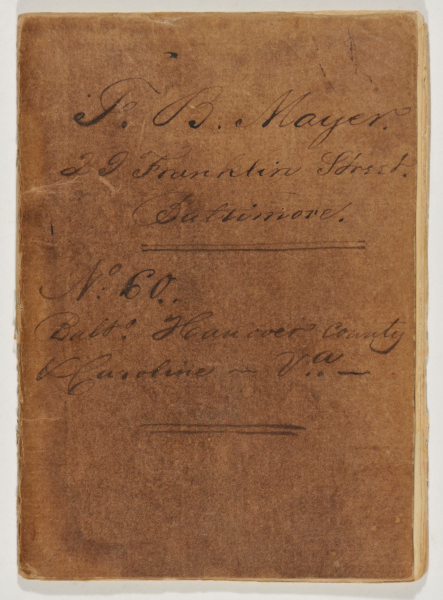 F. B. Mayer.
29 Franklin Street.
Baltimore.
No. 60.
Balto. Hanover County
& Caroline – Va. –